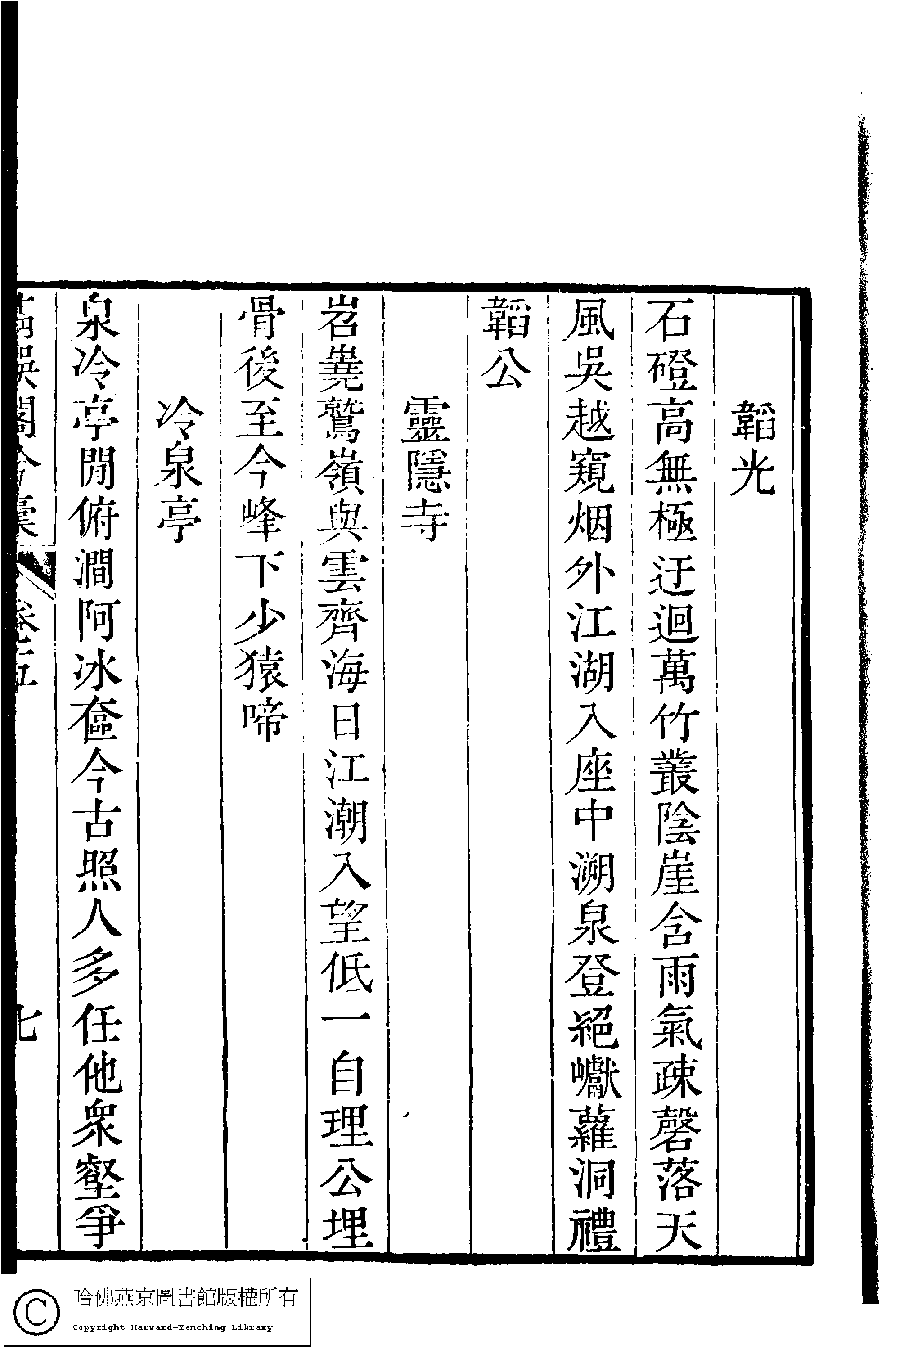 韜光
石磴高無極迂迴萬竹叢陰崖含雨氣疎磬落天
風吳越窺烟外江湖入座中溯泉登絕巘蘿洞禮
韜公
靈隱寺
岧嶤鷲嶺與雲齊海日江潮入望低一自理公埋
骨後至今峰下少猿啼
冷泉亭
泉冷亭閒俯澗阿冰奩今古照人多任他衆壑爭
卷五
七
哈佛燕京圖書館版權所有
Copyright Harvard-Yenching Library